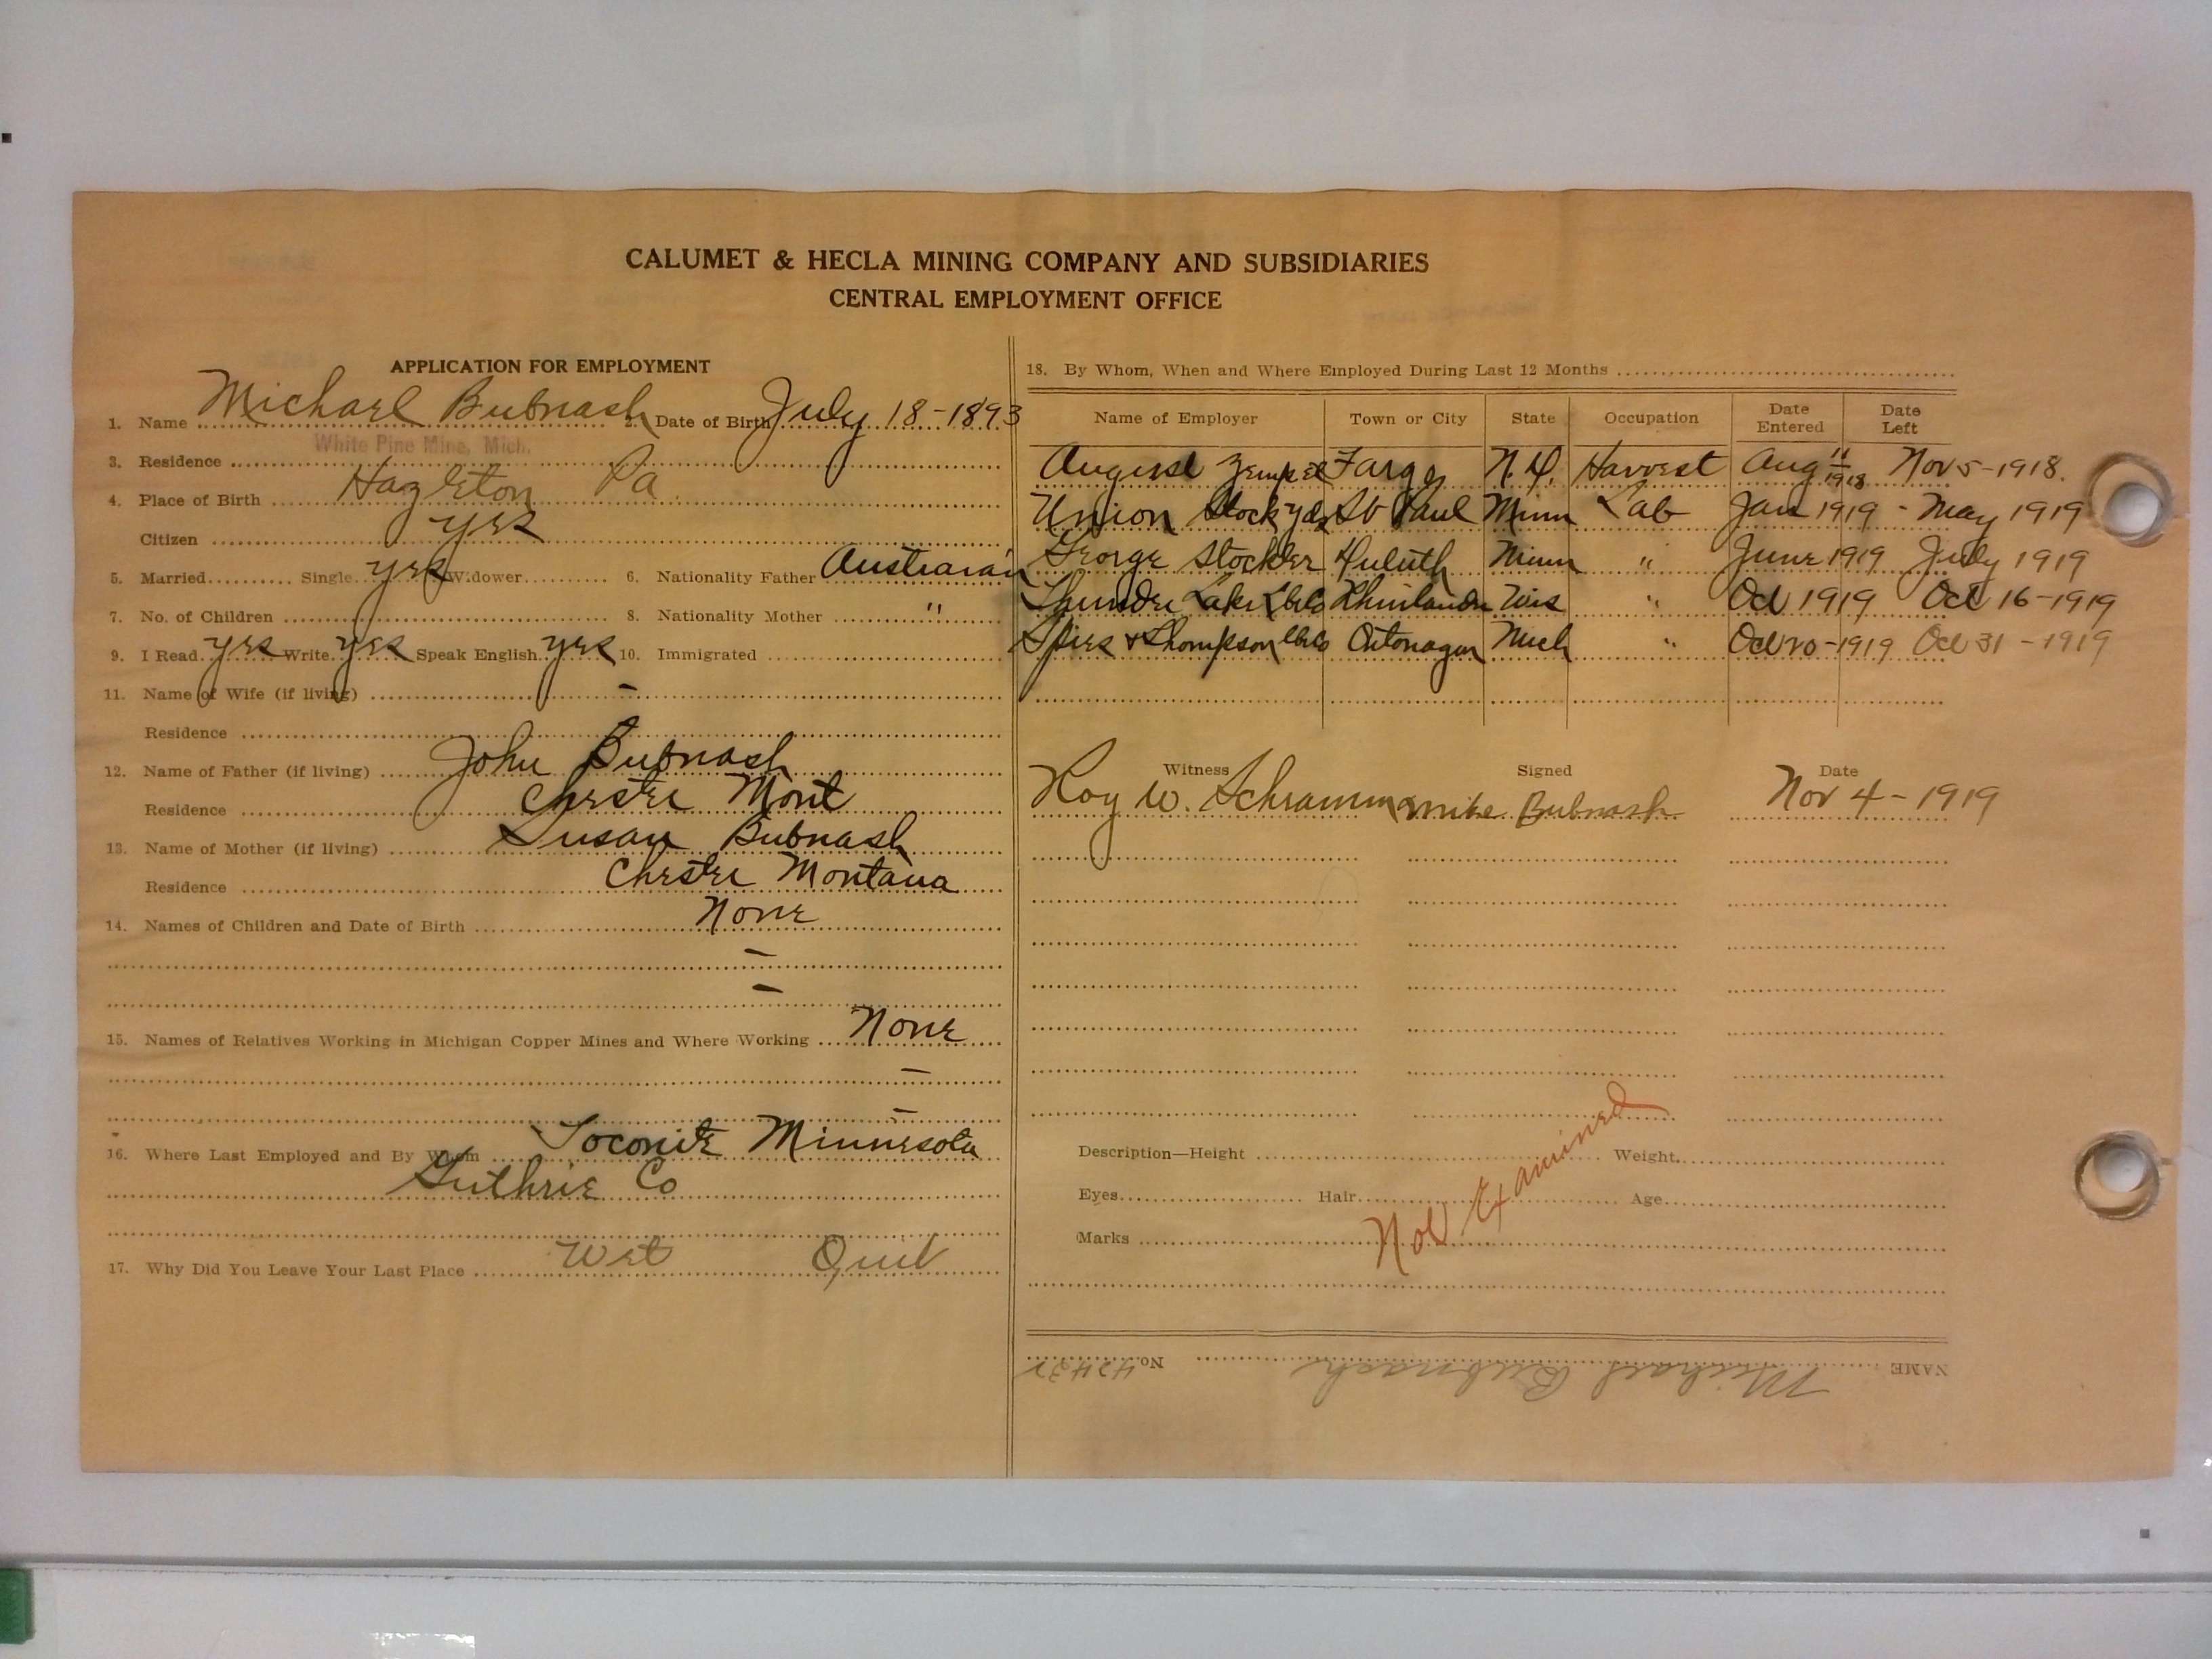 CALUMET & HECLA MINING COMPANY AND SUBSIDIARIES
CENTRAL EMPLOYMENT OFFICE
APPLICATION FOR EMPLOYMENT
1. Name Michael Bubnash 2. Date of Birth July 18-1893
White Pine Mine, Mich.
3. Residence
4. Place of Birth Hazleton Pa
Citizen yes
5. Married Single yes Widower 6. Nationality Father Austrian
7. No. of Children 8. Nationality Mother "
9. I Read yes Write yes Speak English yes 10. Immigrated
11. Name of Wife (if living) -
Residence
12. Name of Father (if living) John Bubnash
Residence Chester Mont
13. Name of Mother (if living) Susan Bubnash
Residence Chester Montana
14. Names of Children and Date of Birth None
-
-
15. Names of Relatives Working in Michigan Copper Mines and Where Working None
-
-
16. Where Last Employed and By Whom Toconite Minnesota
Guthrie Co
17. Why Did You Leave Your Last Place Wet Quit
18. By Whom, When and Where Employed During Last 12 Months
Name of Employer Town or City State Occupation Date Entered Date Left
August Zempel Fargo N.D. Harvest Aug 11 1918 Nov 5-1918.
Union Stock yds St Paul Minn Lab Jan 1919 - May 1919
George Stockler Duluth Minn " June 1919 July 1919
Thunder Lake Lbr Co Rhinlander Wis " Oct 1919 Oct 16-1919
Spies & Thompson Lbr Co Ontonagon Mich " Oct 20-1919 Oct 31-1919
Witness Signed Date
Roy W. Schramm Mike Bubnash Nov 4-1919
Description—Height Weight
Eyes Hair Age
Marks
Not Examined
NAME Michael Bubnash No.